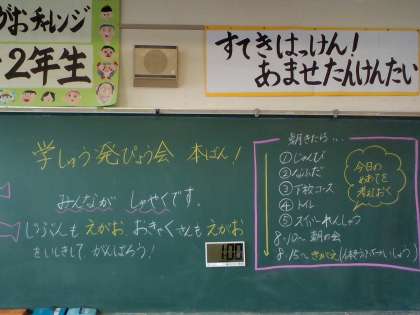 がおチャレンジ
2年生
すてきはっけん!
あませたんけんたい
学しゅう発ぴょう会 本ばん!
みんなが しゅやくです。
じぶんも えがお、おきゃくさんも えがお
をいしきして がんばろう!
1:00
朝きたら…
①じゅんび
②なふだ
③下校コース
④トイレ
⑤スイミーれんしゅう
8:10~ 朝の会
8:15~ きがえ
今日の
めあてを
考えておく